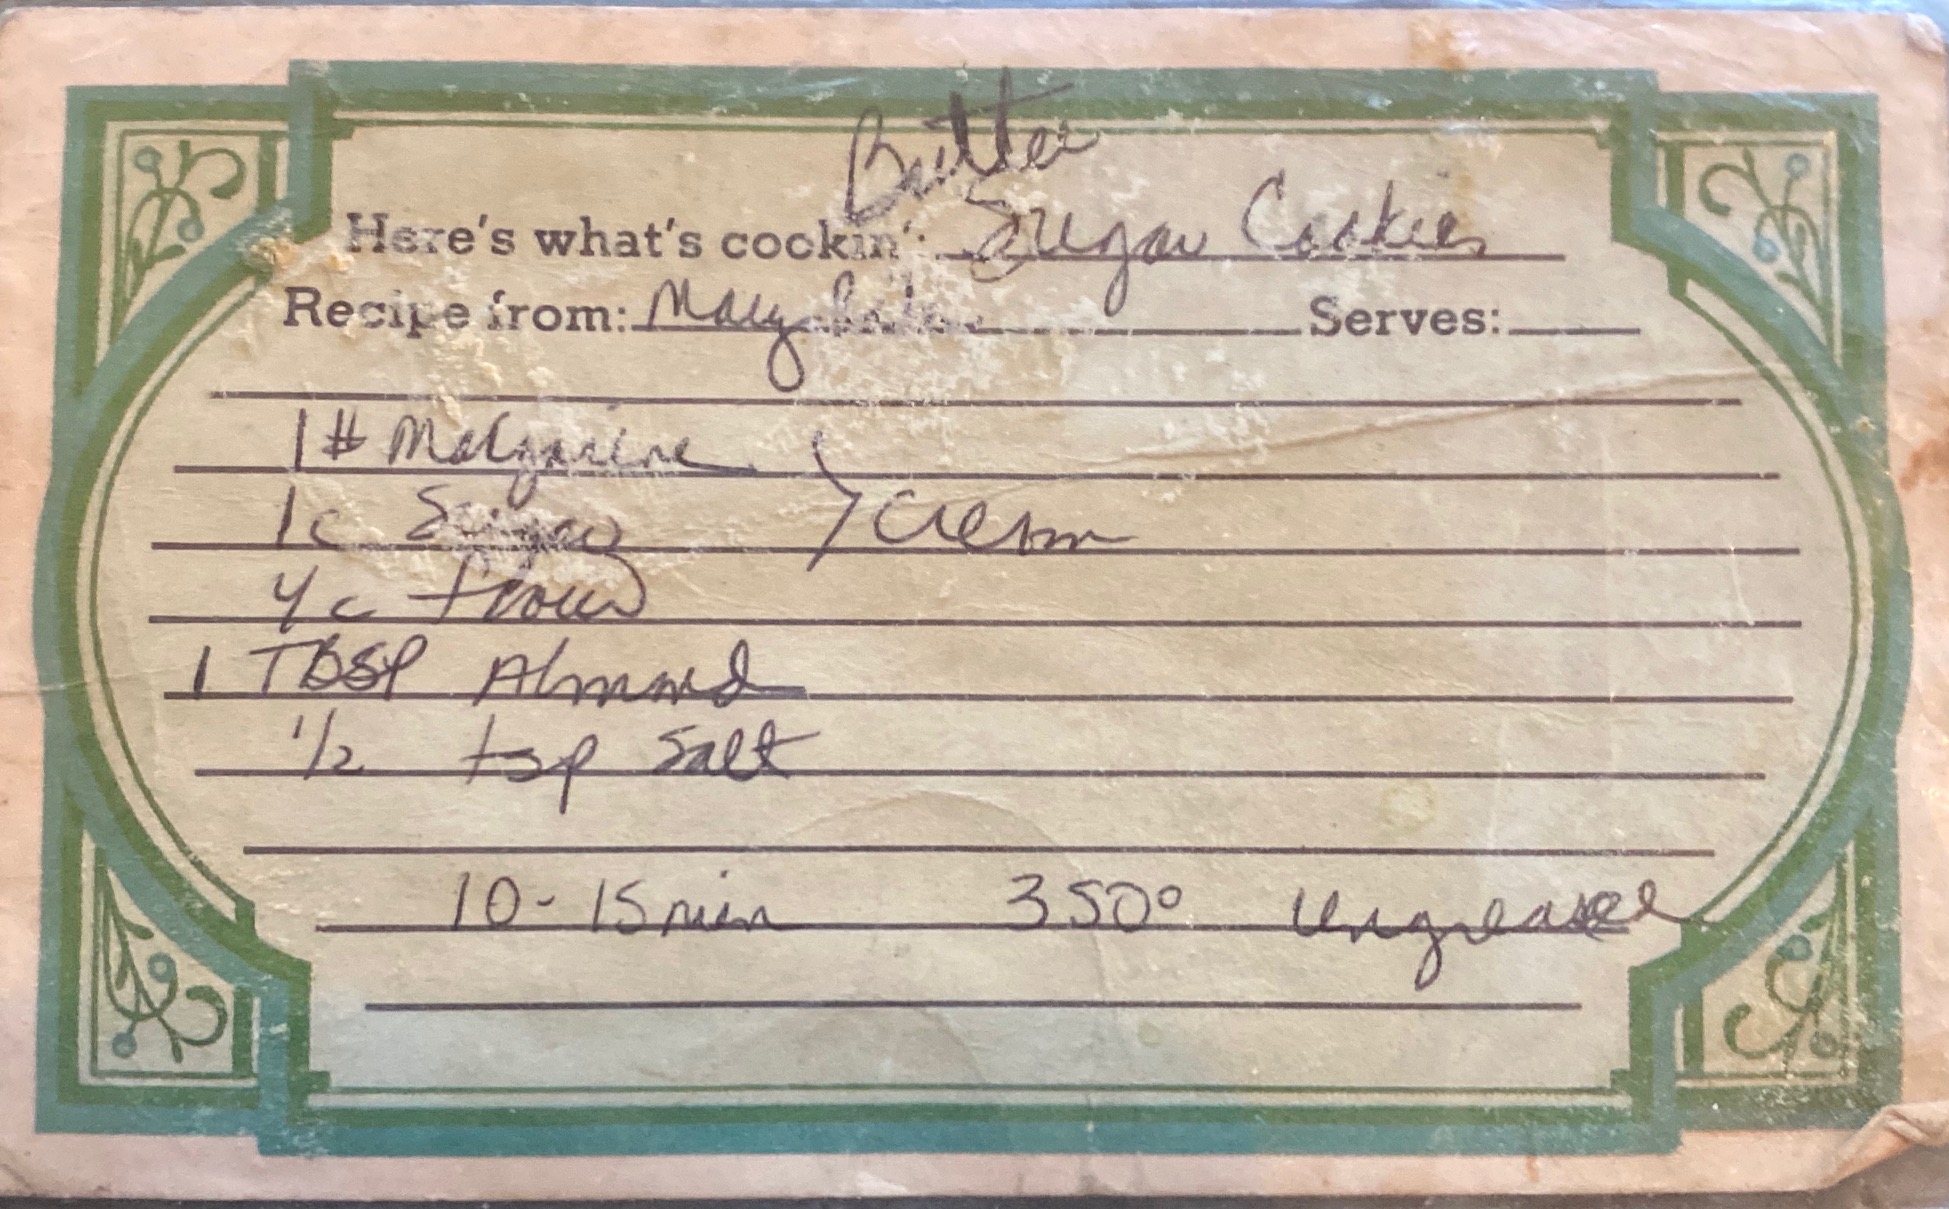 Butter
Here's what's cookin': Sugar Cookies
Recipe from: Mary Serves:
1 # Margarine
1 c Sugar } Cream
4 c flour
1 TBSP Almond
1/2 tsp Salt
10-15 min 350° Ungreased